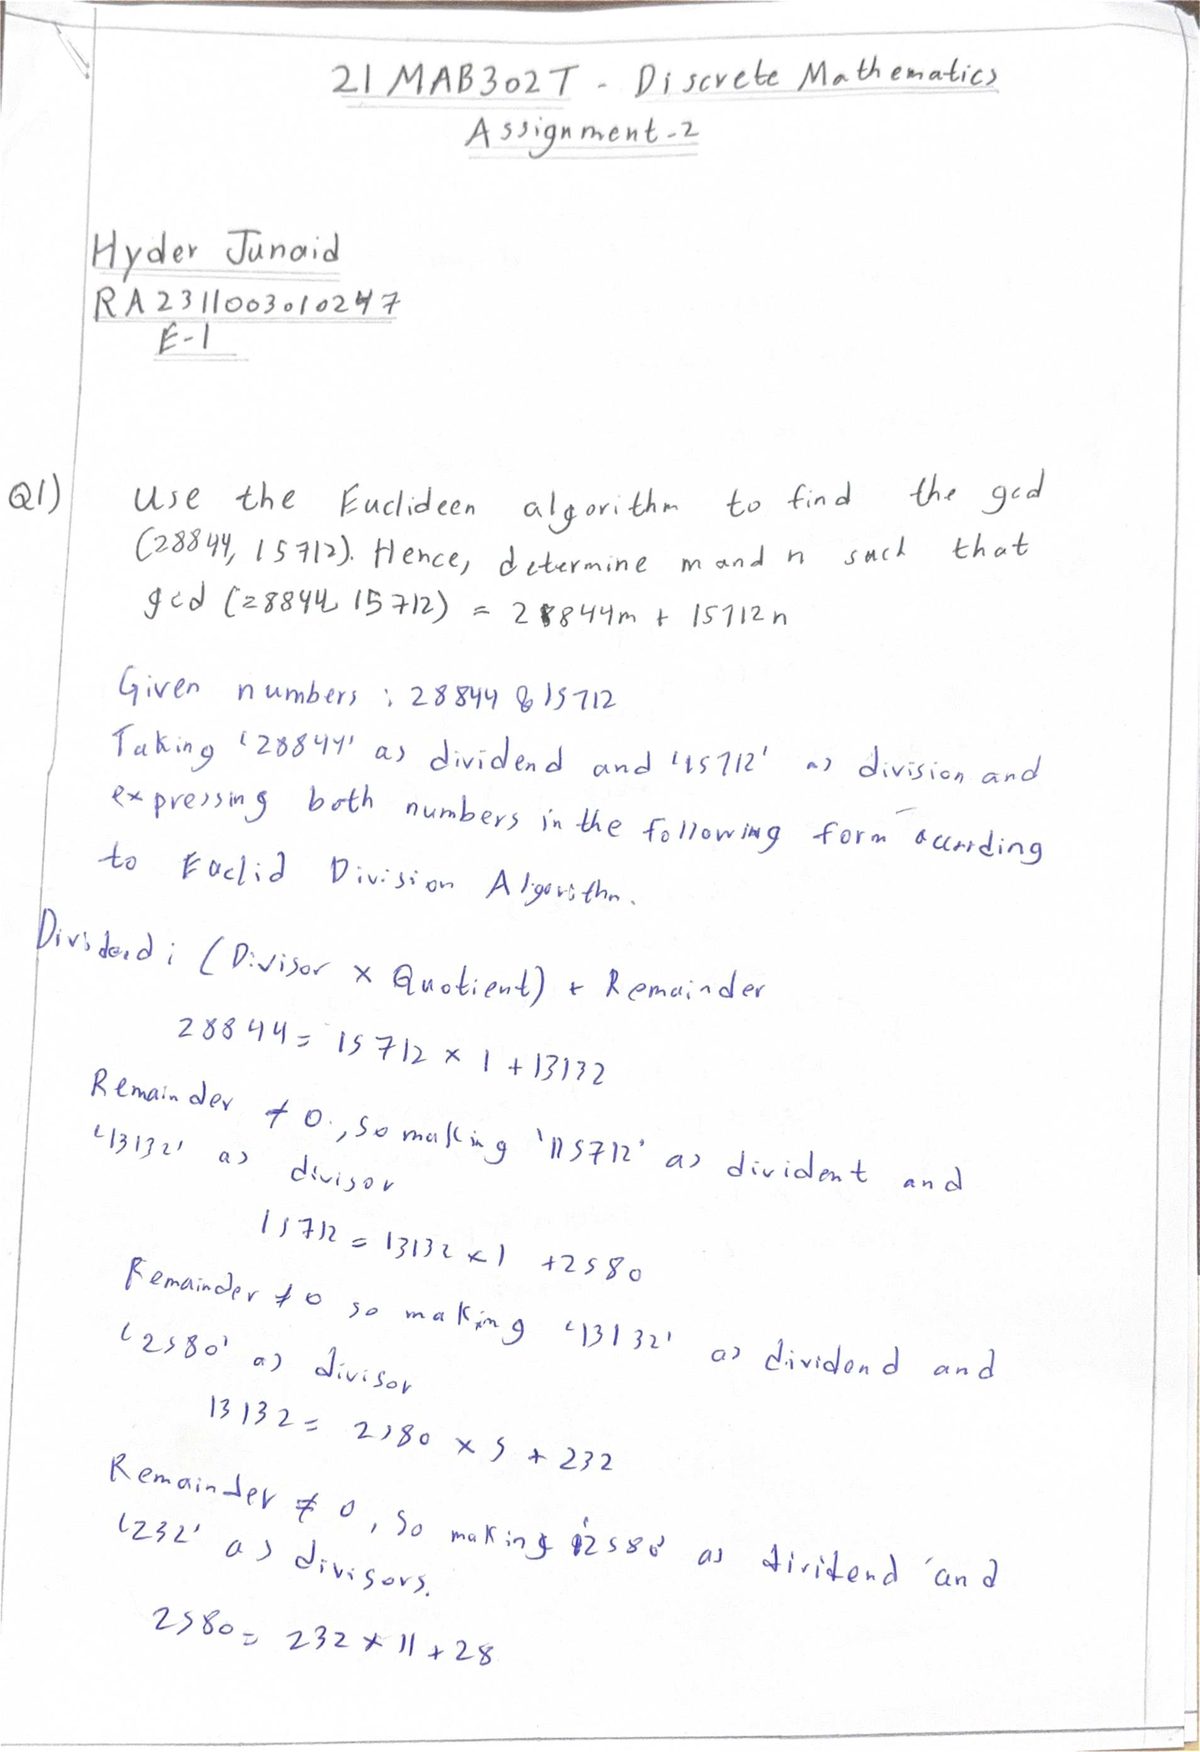 21MAB302T - Discrete Mathematics
Assignment-2
Hyder Junaid
RA2311003010247
E-1
Q1) Use the Euclideen algorithm to find the gcd
(28844, 15712). Hence, determine m and n such that
gcd (28844, 15712) = 28844m + 15712n
Given numbers : 28844 & 15712
Taking '28844' as dividend and '15712' as division and
expressing both numbers in the following form according
to Euclid Division Algorithm.
Dividend : (Divisor × Quotient) + Remainder
28844 = 15712 × 1 + 13132
Remainder ≠ 0, so making '15712' as divident and
'13132' as divisor
15712 = 13132 × 1 + 2580
Remainder ≠ 0 so making '13132' as dividend and
'2580' as divisor
13132 = 2580 × 5 + 232
Remainder ≠ 0, so making '2580' as dividend and
'232' as divisors.
2580 = 232 × 11 + 28